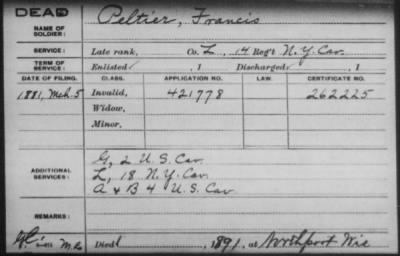 DEAD
NAME OF SOLDIER: Peltier, Francis
SERVICE: Late rank, Co. L, 14 Reg't N.Y. Cav.
TERM OF SERVICE: Enlisted , 1 Discharged , 1
DATE OF FILING. CLASS. APPLICATION NO. LAW. CERTIFICATE NO.
1881, Mch. 5 Invalid, 421778 262225
Widow,
Minor,
G, 2 U.S. Cav.
ADDITIONAL SERVICES: L, 18 N.Y. Cav.
A & B 4 U.S. Cav
REMARKS:
Died , 1891, at Northport Wis